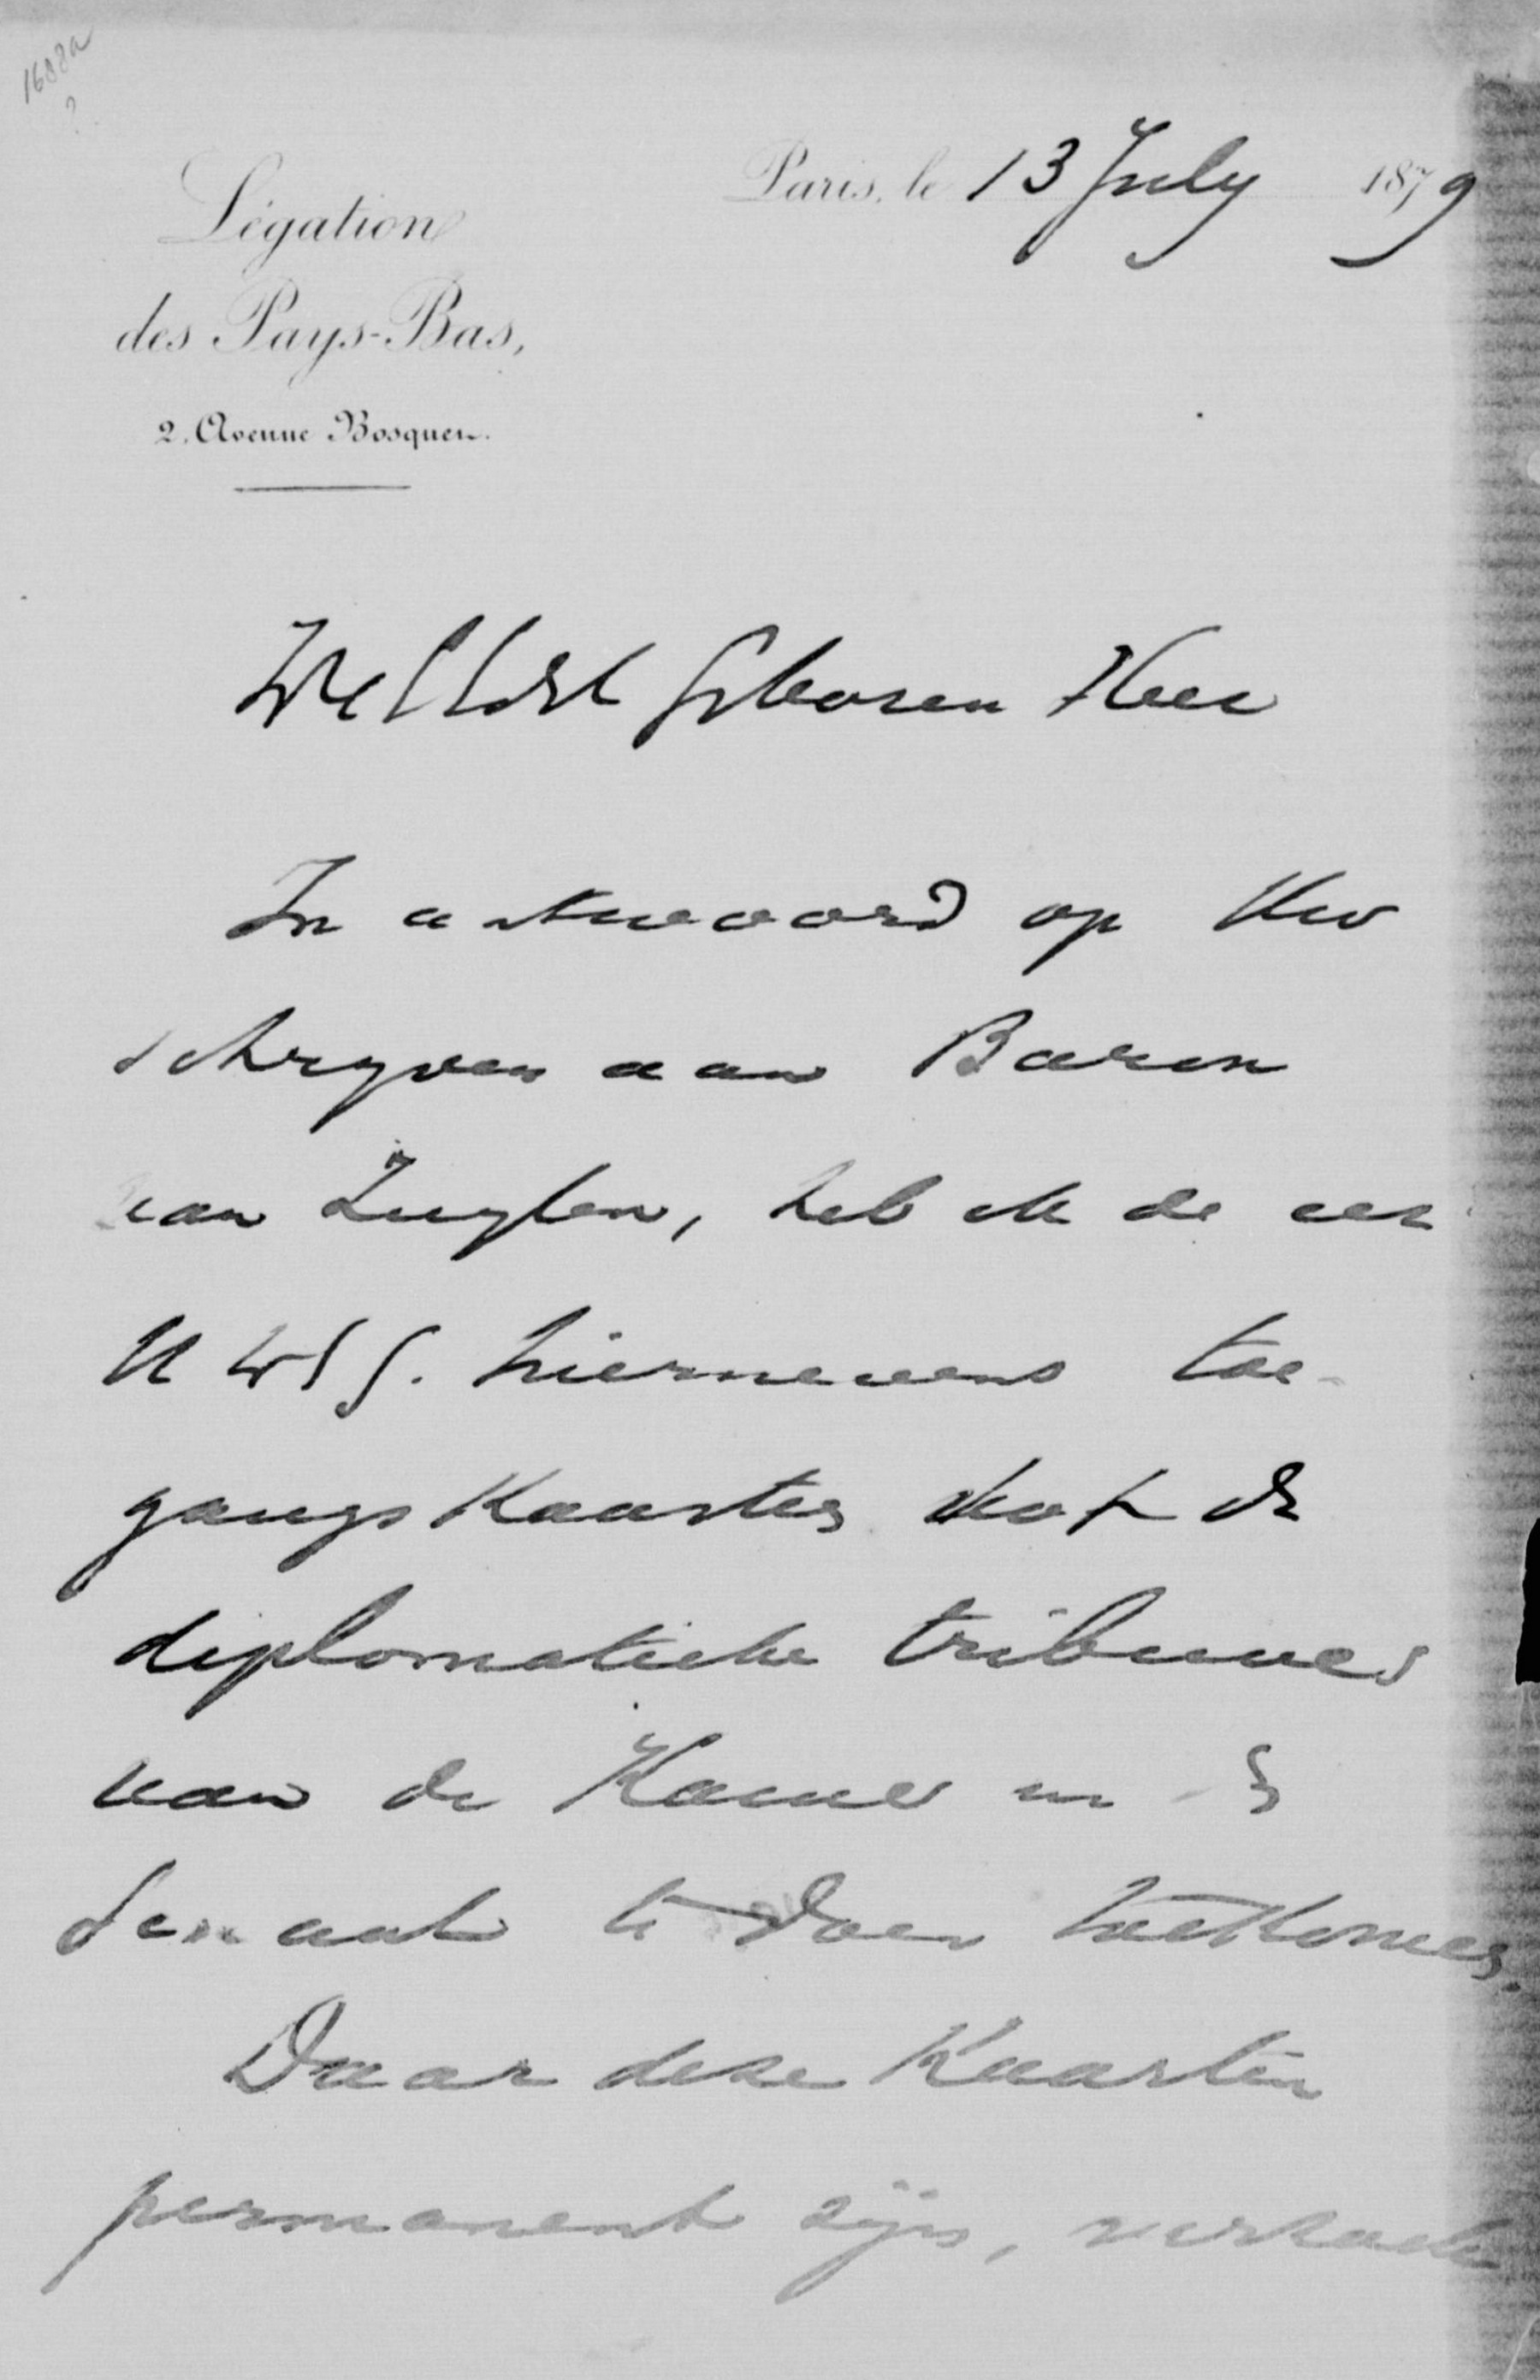 1688a
?
Paris, le 13 July 1879
Légation
des Pays-Bas,
2, Avenue Bosquet.
WelEdel Geboren Heer
In antwoord op Uw
schryven aan Baron
van Zuylen, heb ik de eer
U WEG. hiernevens toe-
gangskaarten tot de
diplomatieke tribunes
van de Kamer en
Senaat te doen toekomen.
Daar deze Kaarten
permanent zijn, verzoek